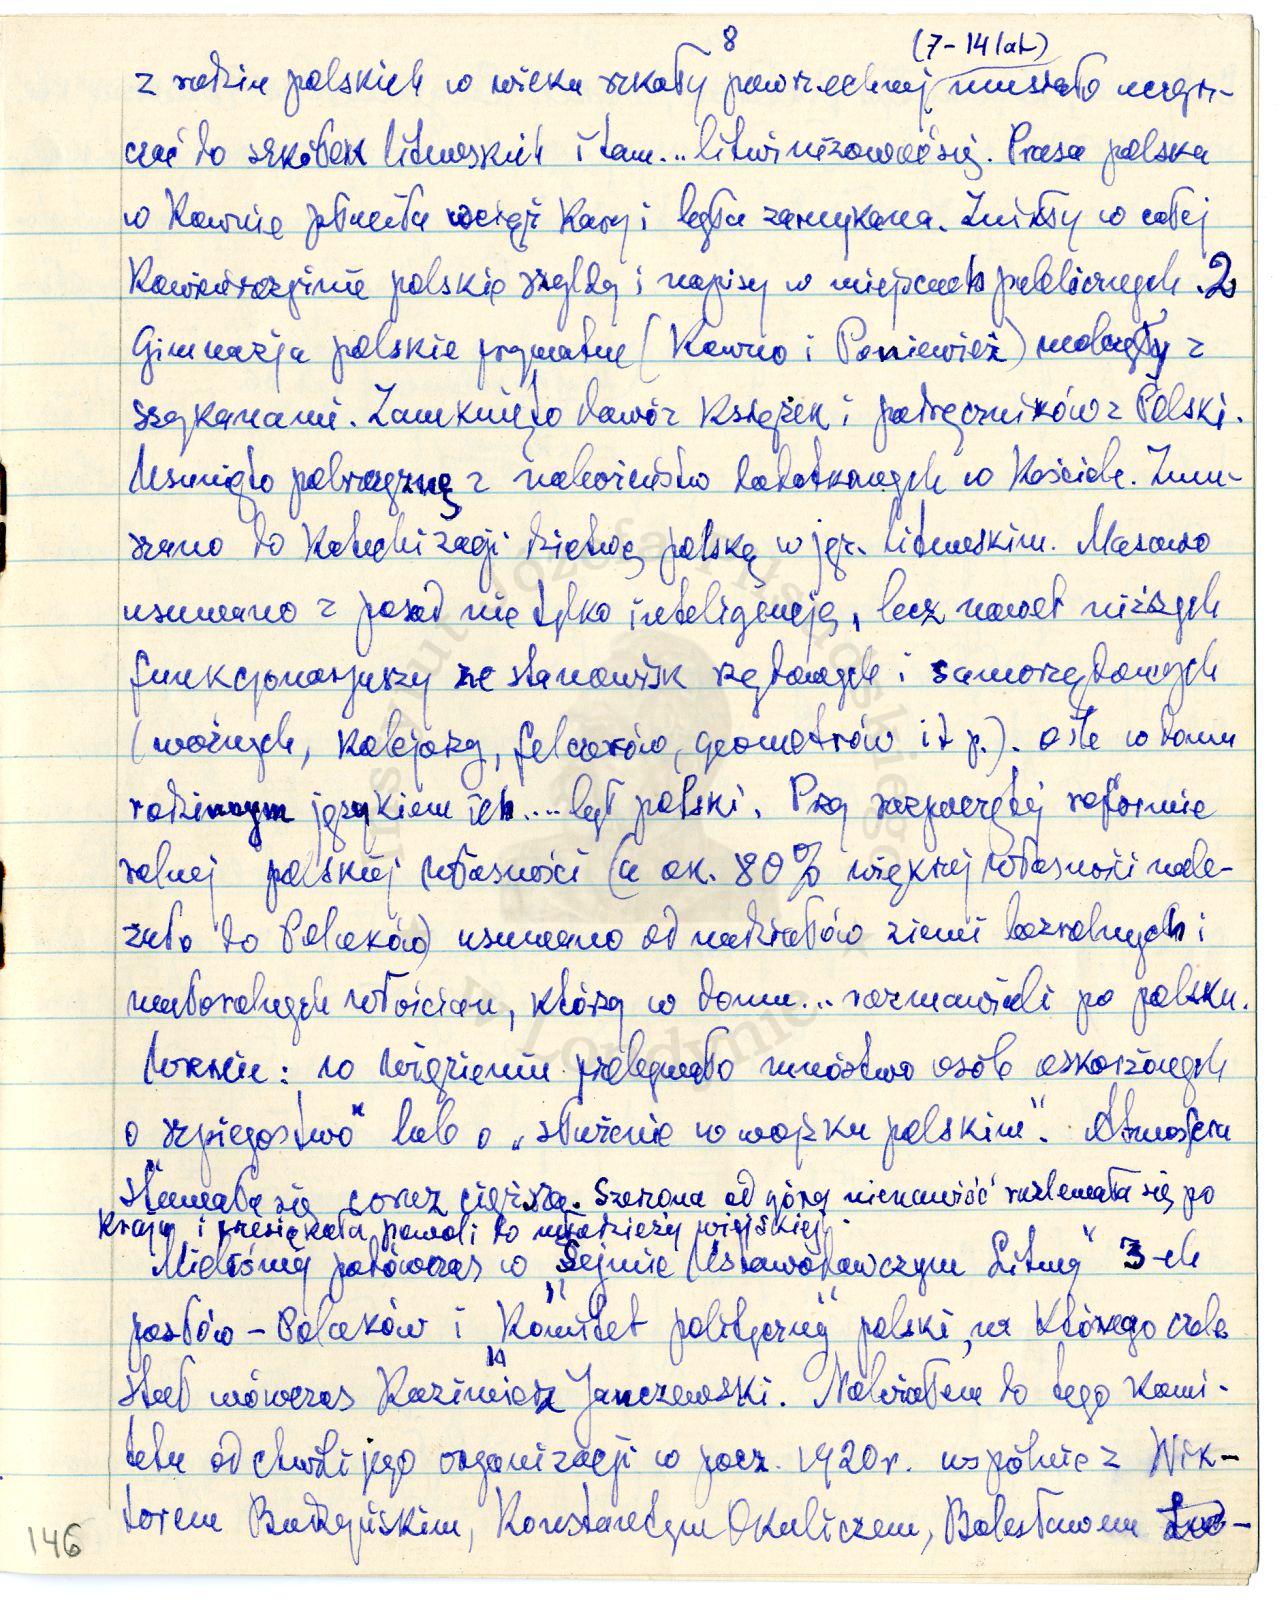 8
(7-14 lat)
z rodzin polskich w wieku szkoły powszechnej musiało uczęsz-
czać do szkółek litewskich i tam... litwinizować się. Prasa polska
w Kownie płaciła wciąż kary i była zamykana. Znikły w całej
Kowieńszczyźnie polskie szyldy i napisy w miejscach publicznych. 2
Gimnazja polskie prywatne (Kowno i Poniewież) walczyły z
szykanami. Zamknięto dowóz książek i podręczników z Polski.
Usunięto polszczyznę z nabożeństw dodatkowych w Kościele. Zmu-
szano do Katechizacji dziatwę polską w jęz. litewskim. Masowo
usuwano z posad nie tylko inteligencję, lecz nawet niższych
funkcjonarjuszy ze stanowisk rządowych i samorządowych
(woźnych, kolejarzy, felczerów, geometrów i t p.). o ile w domu
rodzinnym językiem ich.... był polski. Przy rozpoczętej reformie
rolnej polskiej własności (a ok. 80% większej własności nale-
żało do Polaków) usuwano od nadziałów ziemi bezrolnych i
małorolnych włościan, którzy w domu... rozmawiali po polsku.
Wreszcie: w więzieniu przebywało mnóstwo osób oskarżonych
o „szpiegostwo" lub o „służenie w wojsku polskim". Atmosfera
stawała się coraz cięższa. Szerzona od góry nienawiść rozlewała się po
Kraju i przesiąkała powoli do młodzieży wiejskiej.
Mieliśmy podówczas w „Sejmie Ustawodawczym Litwy" 3-ch
posłów - Polaków i „Komitet polityczny" polski, na którego czele
stał wówczas Kazimierz Janczewski. Należałem do tego Komi-
tetu od chwili jego organizacji w pocz. 1920 r. wspólnie z Wik-
torem Budzyńskim, Konstantym Okuliczem, Bolesławem Lut-
146
Instytut Józefa Piłsudskiego
w Londynie